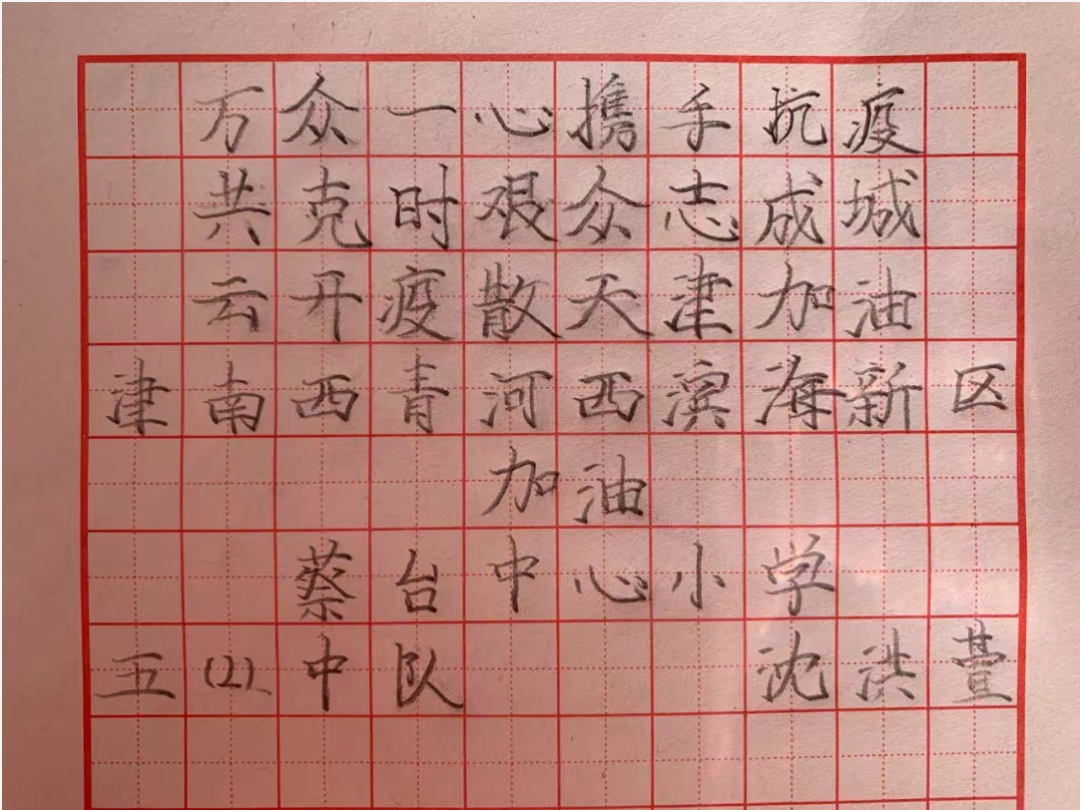 万众一心携手抗疫
共克时艰众志成城
云开疫散天津加油
津南西青河西滨海新区
加油
蔡台中心小学
五(2)中队 沈洪